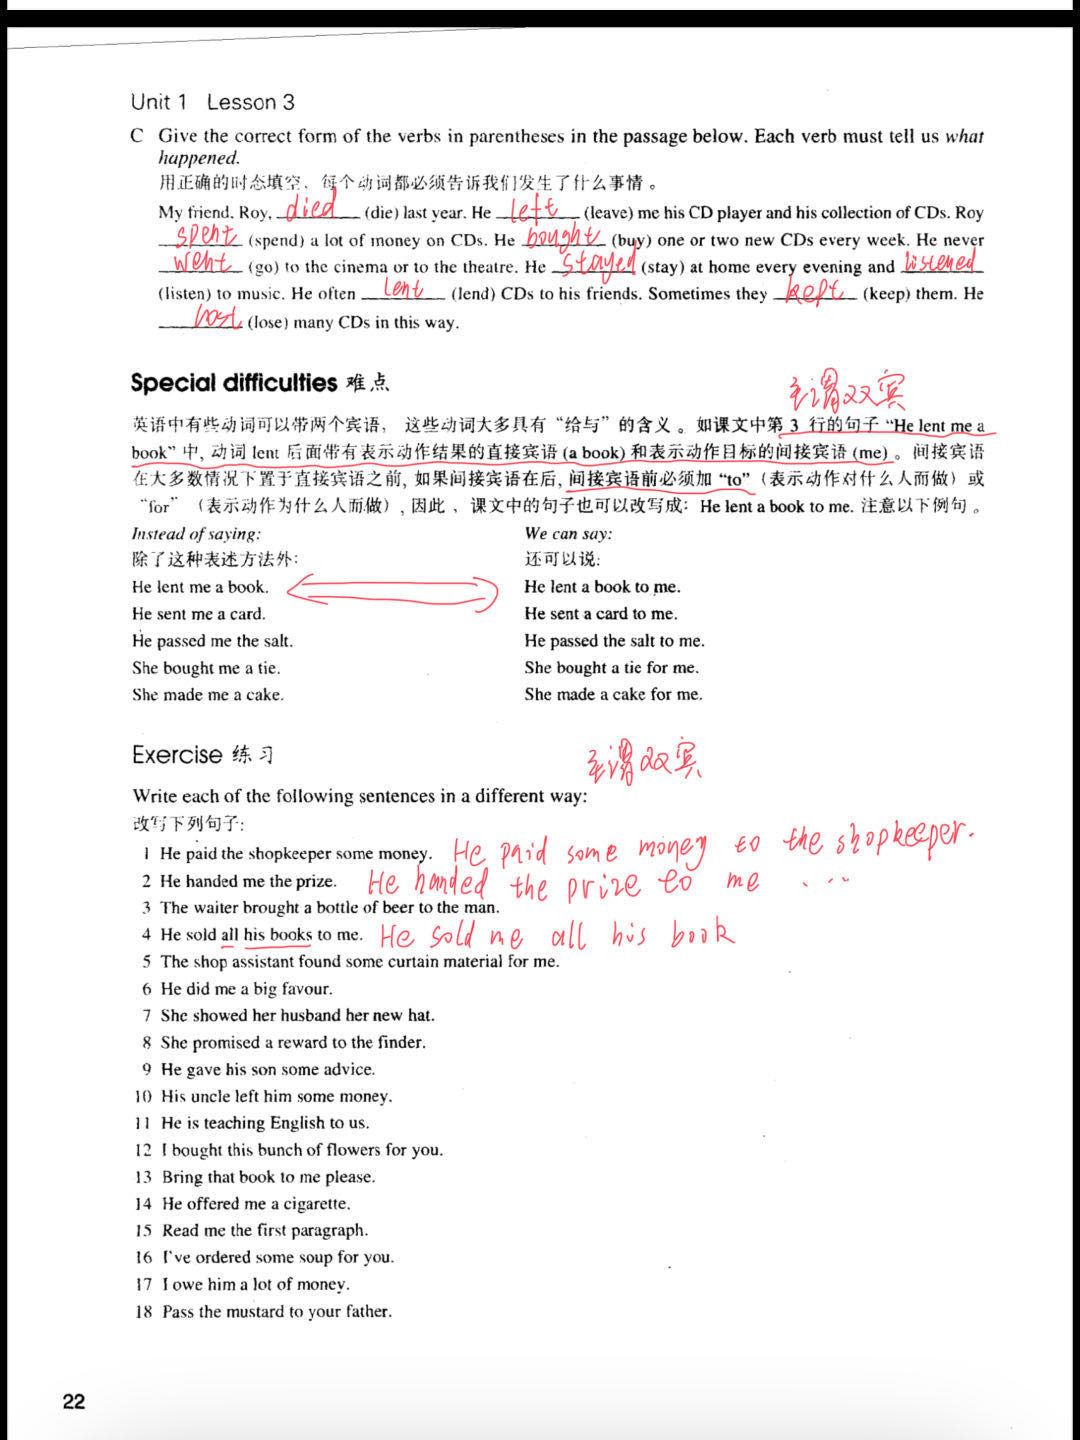 Unit 1 Lesson 3
C Give the correct form of the verbs in parentheses in the passage below. Each verb must tell us what
happened.
用正确的时态填空，每个动词都必须告诉我们发生了什么事情。
My friend, Roy, died (die) last year. He left (leave) me his CD player and his collection of CDs. Roy
spent (spend) a lot of money on CDs. He bought (buy) one or two new CDs every week. He never
went (go) to the cinema or to the theatre. He stayed (stay) at home every evening and listened
(listen) to music. He often lent (lend) CDs to his friends. Sometimes they kept (keep) them. He
lost (lose) many CDs in this way.
Special difficulties 难点
主谓双宾
英语中有些动词可以带两个宾语，这些动词大多具有“给与”的含义。如课文中第 3 行的句子 “He lent me a
book” 中, 动词 lent 后面带有表示动作结果的直接宾语 (a book) 和表示动作目标的间接宾语 (me) 。间接宾语
在大多数情况下置于直接宾语之前, 如果间接宾语在后, 间接宾语前必须加 “to”（表示动作对什么人而做）或
“for”（表示动作为什么人而做）, 因此，课文中的句子也可以改写成：He lent a book to me. 注意以下例句。
Instead of saying: We can say:
除了这种表述方法外： 还可以说:
He lent me a book. He lent a book to me.
He sent me a card. He sent a card to me.
He passed me the salt. He passed the salt to me.
She bought me a tie. She bought a tie for me.
She made me a cake. She made a cake for me.
Exercise 练习
主谓双宾
Write each of the following sentences in a different way:
改写下列句子:
1 He paid the shopkeeper some money. He paid some money to the shopkeeper.
2 He handed me the prize. He handed the prize to me ...
3 The waiter brought a bottle of beer to the man.
4 He sold all his books to me. He sold me all his book
5 The shop assistant found some curtain material for me.
6 He did me a big favour.
7 She showed her husband her new hat.
8 She promised a reward to the finder.
9 He gave his son some advice.
10 His uncle left him some money.
11 He is teaching English to us.
12 I bought this bunch of flowers for you.
13 Bring that book to me please.
14 He offered me a cigarette.
15 Read me the first paragraph.
16 I've ordered some soup for you.
17 I owe him a lot of money.
18 Pass the mustard to your father.
22